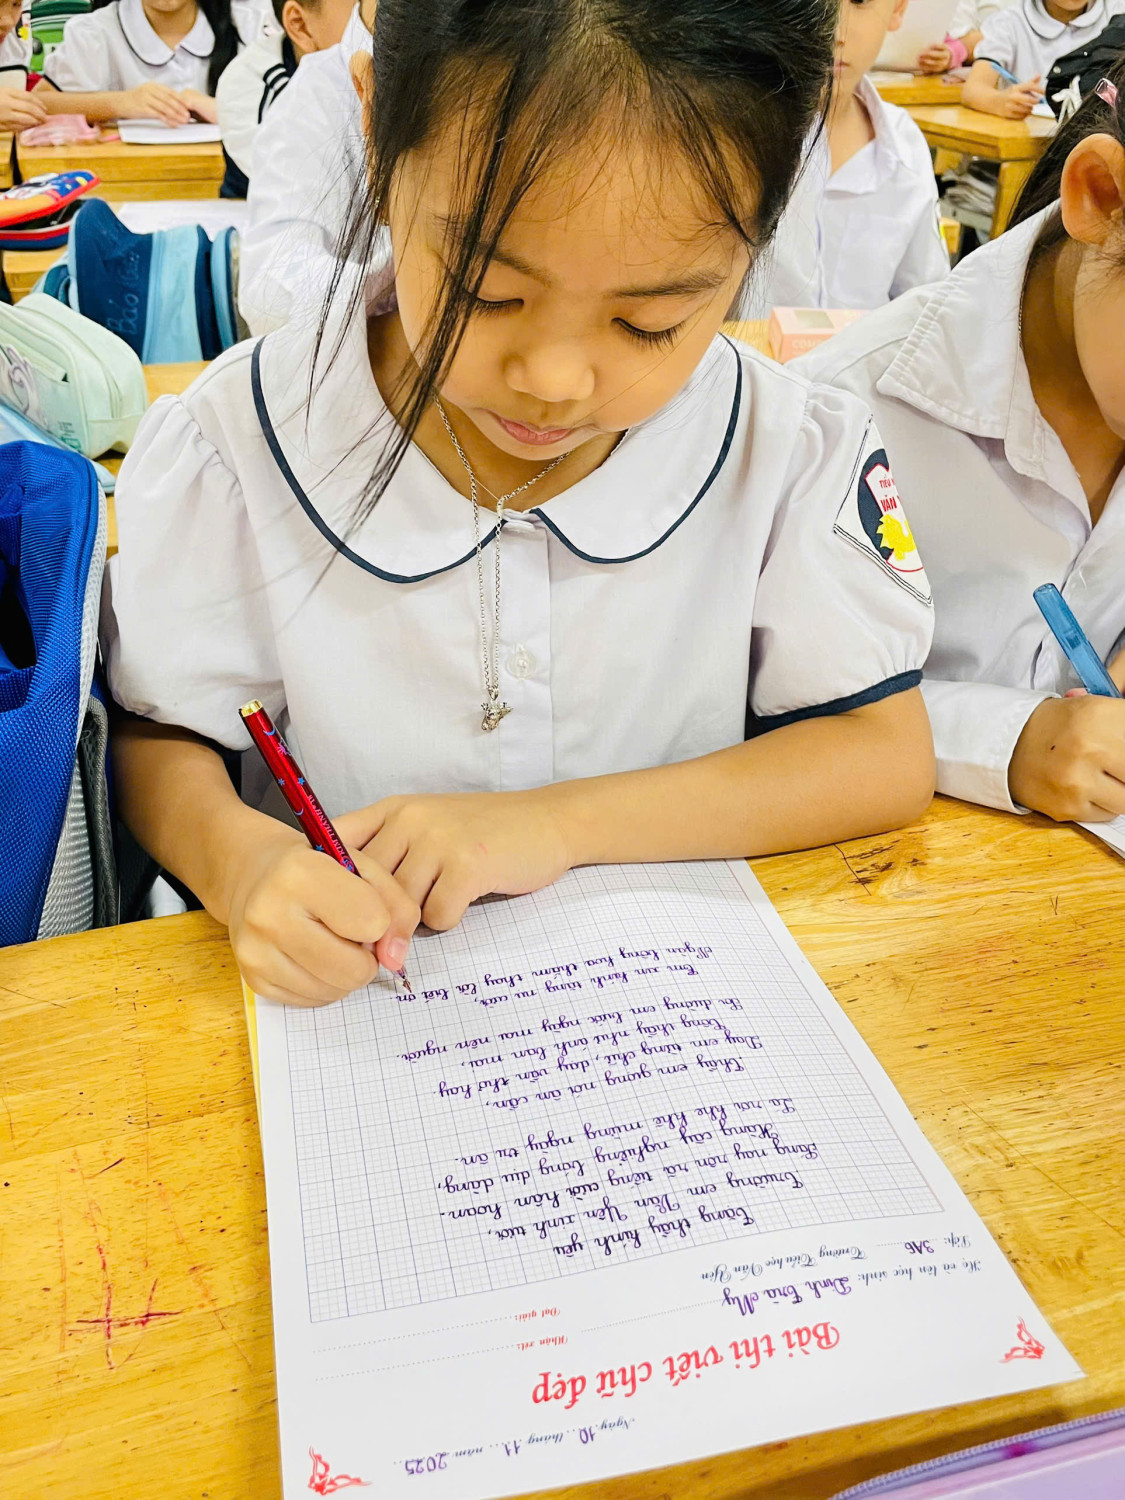 Ngày 10 tháng 11 năm 2025
Bài thi viết chữ đẹp
Họ và tên học sinh: Đinh Trà My
Lớp: 3A6 Trường Tiểu học Văn Yên
Nhận xét:
Đạt giải:
Tặng thầy kính yêu
Trường em Văn Yên xinh tươi,
Sáng nay rộn rã tiếng cười hân hoan.
Hàng cây nghiêng bóng dịu dàng,
Là nơi khe khẽ mừng ngày tri ân.
Thầy em giọng nói ân cần,
Dạy em từng chữ, dạy vần thơ hay.
Công thầy như ánh ban mai,
dưỡng em bước ngày mai nên người.
Em xin kính tặng nụ cười,
Ngàn bông hoa thắm thay lời biết ơn.
KIM THÀNH
Bảo
TIỂU
VĂN